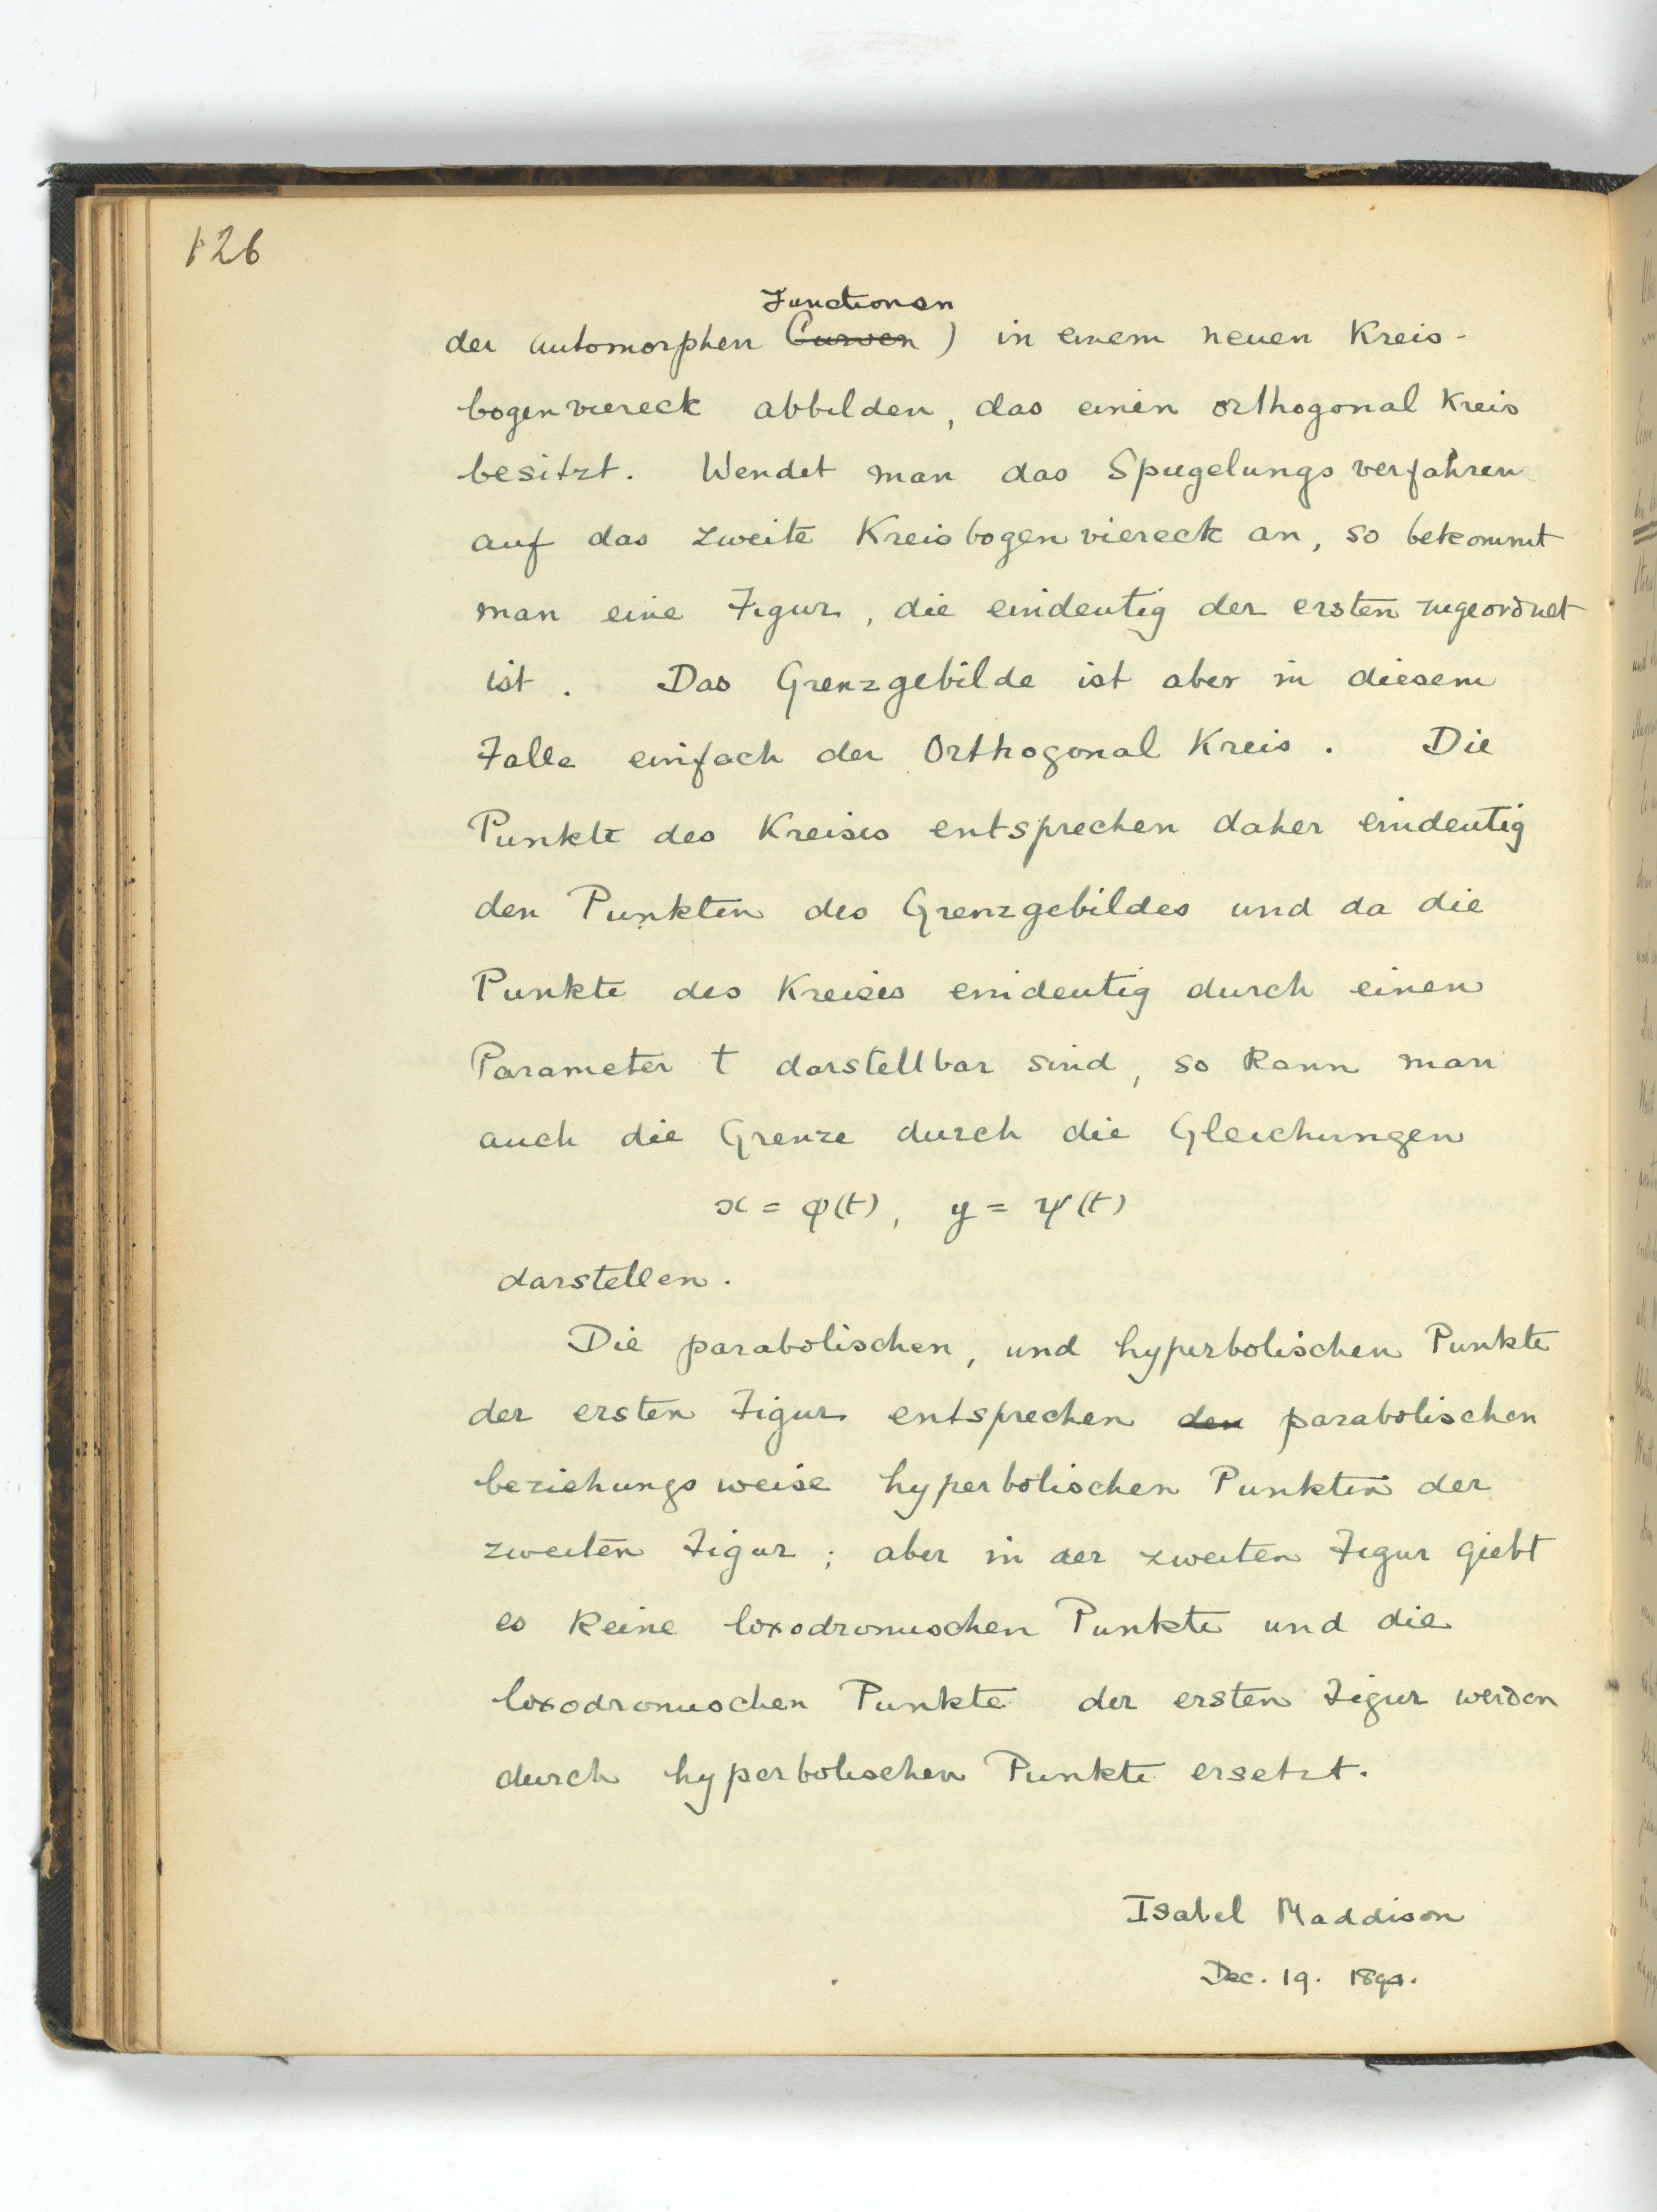 126
Functionen
der automorphen Curven) in einem neuen Kreis-
bogenviereck abbilden, das einen orthogonal Kreis
besitzt. Wendet man das Spiegelungsverfahren
auf das zweite Kreisbogenviereck an, so bekommt
man eine Figur, die eindeutig der ersten zugeordnet
ist. Das Grenzgebilde ist aber in diesem
Falle einfach der Orthogonal Kreis. Die
Punkte des Kreises entsprechen daher eindeutig
den Punkten des Grenzgebildes und da die
Punkte des Kreises eindeutig durch einen
Parameter t darstellbar sind, so kann man
auch die Grenze durch die Gleichungen
x = φ(t), y = ψ(t)
darstellen.
Die parabolischen, und hyperbolischen Punkte
der ersten Figur entsprechen den parabolischen
beziehungsweise hyperbolischen Punkten der
zweiten Figur; aber in der zweiten Figur giebt
es keine loxodromischen Punkte und die
loxodromischen Punkte der ersten Figur werden
durch hyperbolischen Punkte ersetzt.
Isabel Maddison
Dec. 19.